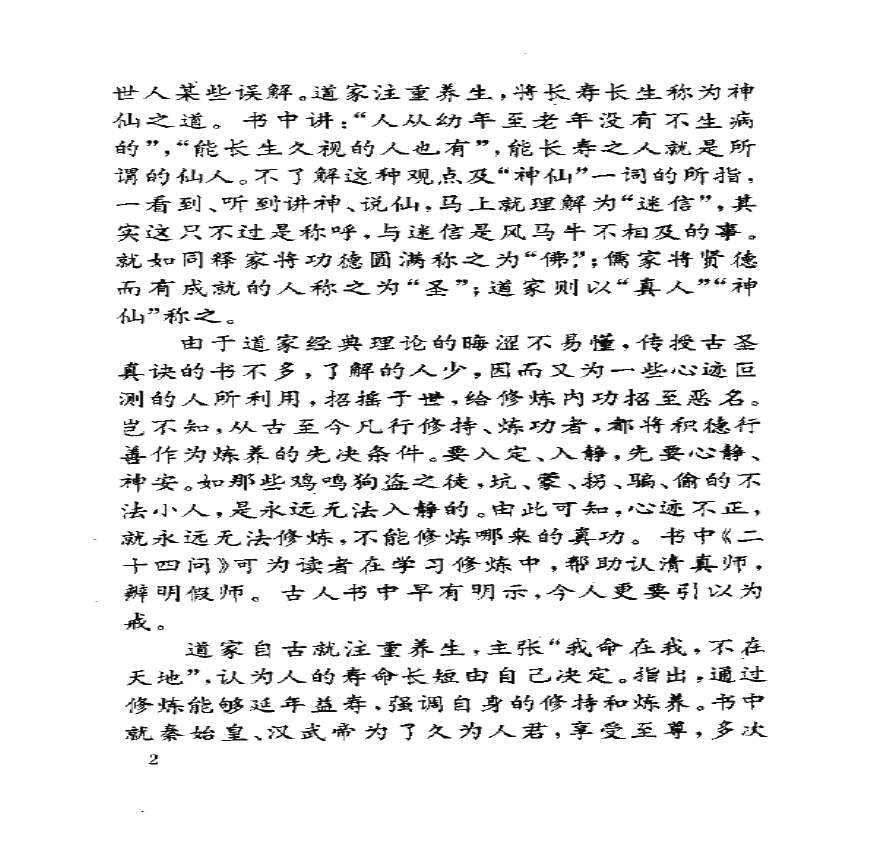 世人某些误解。道家注重养生，将长寿长生称为神
仙之道。书中讲：“人从幼年至老年没有不生病
的”，“能长生久视的人也有”，能长寿之人就是所
谓的仙人。不了解这种观点及“神仙”一词的所指，
一看到、听到讲神、说仙，马上就理解为“迷信”，其
实这只不过是称呼，与迷信是风马牛不相及的事。
就如同释家将功德圆满称之为“佛”；儒家将贤德
而有成就的人称之为“圣”；道家则以“真人”“神
仙”称之。
由于道家经典理论的晦涩不易懂，传授古圣
真诀的书不多，了解的人少，因而又为一些心迹叵
测的人所利用，招摇于世，给修炼内功招至恶名。
岂不知，从古至今凡行修持、炼功者，都将积德行
善作为炼养的先决条件。要入定、入静，先要心静、
神安。如那些鸡鸣狗盗之徒，坑、蒙、拐、骗、偷的不
法小人，是永远无法入静的。由此可知，心迹不正，
就永远无法修炼，不能修炼哪来的真功。书中《二
十四问》可为读者在学习修炼中，帮助认清真师，
辨明假师。古人书中早有明示，今人更要引以为
戒。
道家自古就注重养生，主张“我命在我，不在
天地”，认为人的寿命长短由自己决定。指出，通过
修炼能够延年益寿，强调自身的修持和炼养。书中
就秦始皇、汉武帝为了久为人君，享受至尊，多次
2